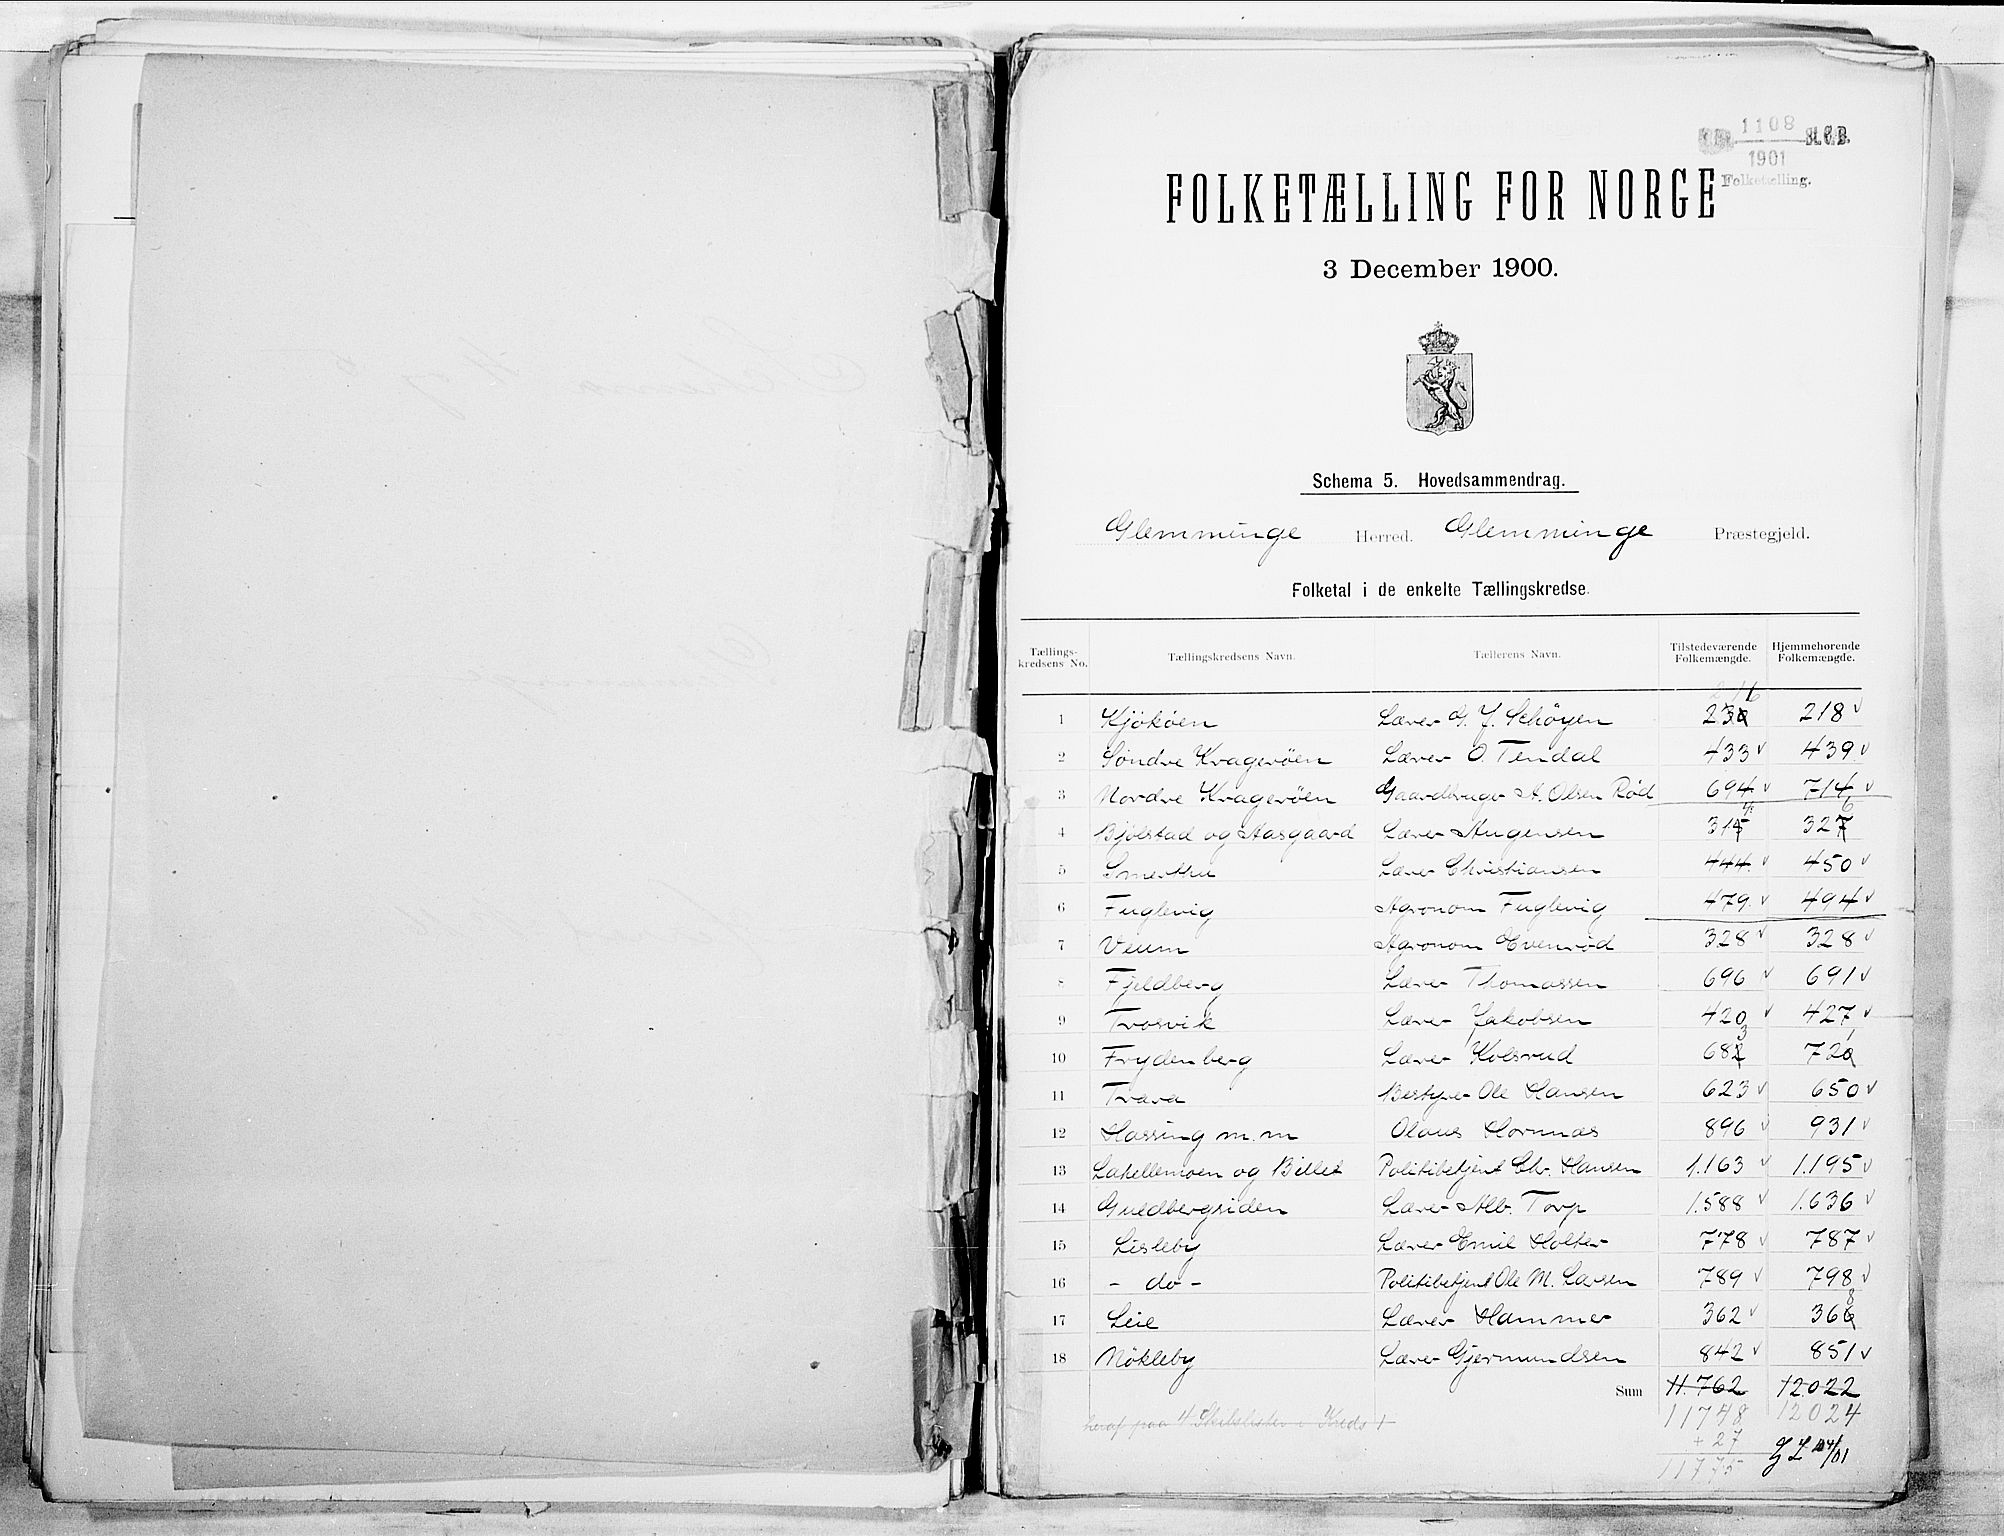 1108 St. C. B.
1901
Folketælling.
FOLKETÆLLING FOR NORGE
3 December 1900.
Schema 5. Hovedsammendrag.
Glemminge Herred. Glemminge Præstegjeld.
Folketal i de enkelte Tællingskredse.
Tællings-kredsens No. Tællingskredsens Navn. Tællerens Navn. Tilstedeværende Folkemængde. Hjemmehørende Folkemængde.
216
1 Kjököen Lærer G. J. Schöyen 230 218
2 Söndre Krageröen Lærer O. Tendal 433 439
3 Nordre Krageröen Gaardbruger A. Olsen Rød 694 714
4 Bjölstad og Aasgaard Lærer Augensen 315 327 6
5 Smerthu Lærer Christiansen 444 450
6 Fuglevig Agronom Fuglevig 479 494
7 Veum Agronom Evenrød 328 328
8 Fjeldberg Lærer Thomassen 696 691
9 Trosvik Lærer Jakobsen 420 427
10 Frydenberg Lærer Kolsrud 682 3 720 1
11 Trara Bestyrer Ole Hansen 623 650
12 Hassing m.m Olaus Hornnæs 896 931
13 Lakellemoen og Billet Politibetjent Chr. Hansen 1.163 1.195
14 Guldbergsiden Lærer Alb. Torp 1.588 1.636
15 Lisleby Lærer Emil Holter 778 787
16 - do - Politibetjent Ole M. Larsen 789 798
17 Leie Lærer Hammer 362 366 8
18 Nökleby Lærer Gjermundsen 842 851
Sum 11.762 12.022
heraf paa 4 Skibslister i Kreds 1 11748 12024
+ 27
11775